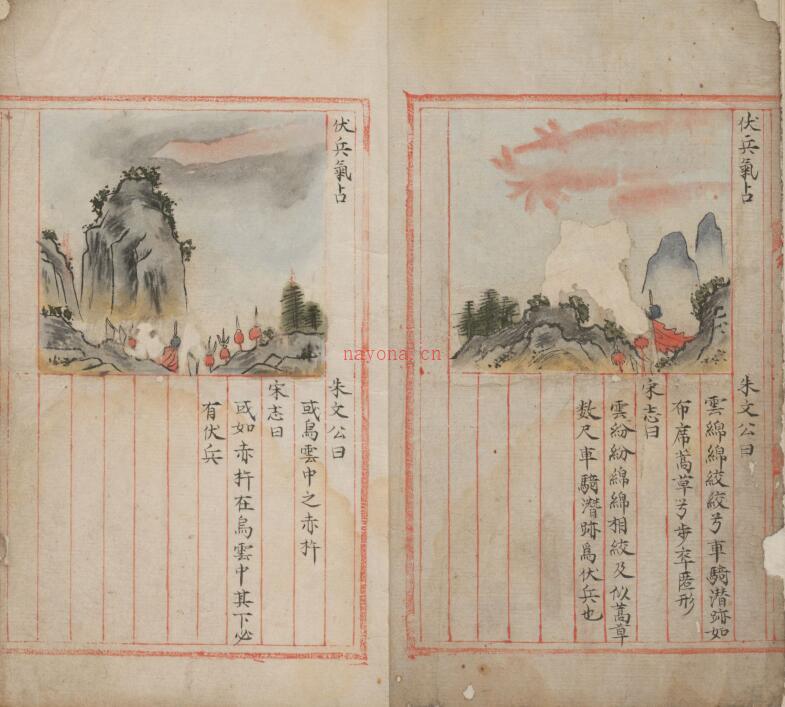 伏兵氣占
朱文公曰
雲綿綿絞絞兮車騎潜跡如
布席蒿草兮步卒匿形
宋志曰
雲紛紛綿綿相絞及似蒿草
数尺車騎潛跡爲伏兵也
伏兵氣占
朱文公曰
或烏雲中之赤杵
宋志曰
或如赤杵在烏雲中其下必
有伏兵
nayona.cn